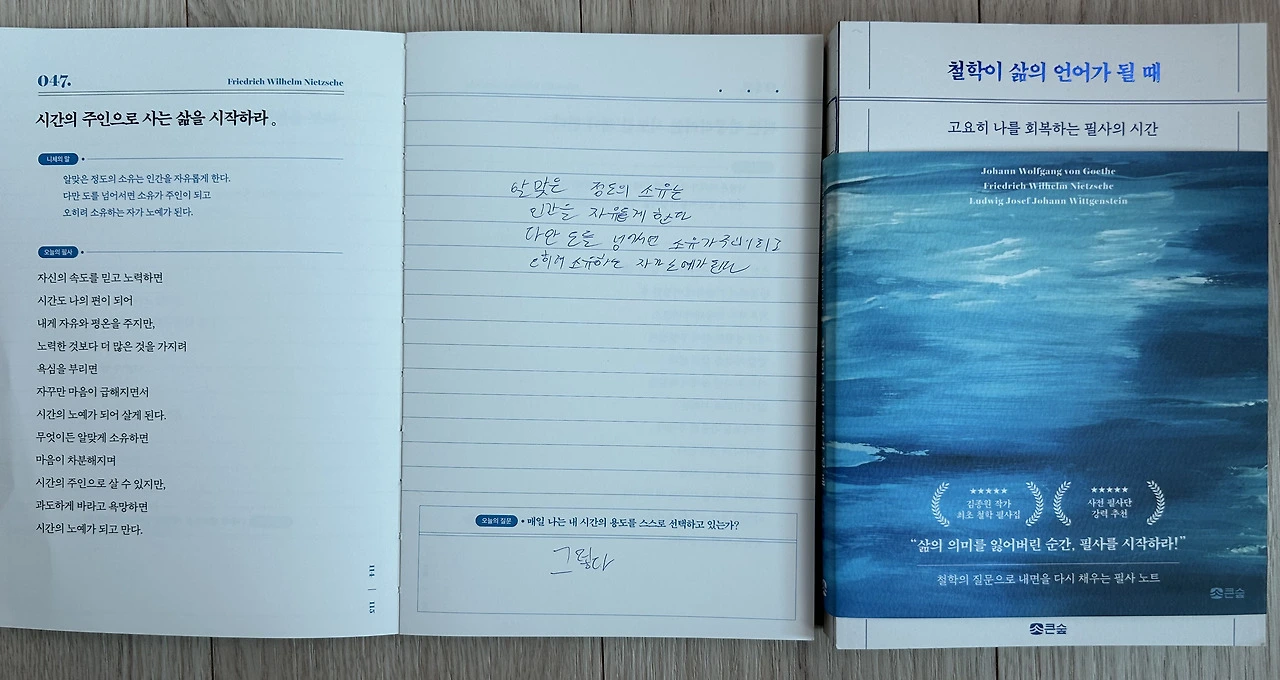 047.
Friedrich Wilhelm Nietzsche
시간의 주인으로 사는 삶을 시작하라.
니체의 말
알맞은 정도의 소유는 인간을 자유롭게 한다.
다만 도를 넘어서면 소유가 주인이 되고
오히려 소유하는 자가 노예가 된다.
오늘의 필사
자신의 속도를 믿고 노력하면
시간도 나의 편이 되어
내게 자유와 평온을 주지만,
노력한 것보다 더 많은 것을 가지려
욕심을 부리면
자꾸만 마음이 급해지면서
시간의 노예가 되어 살게 된다.
무엇이든 알맞게 소유하면
마음이 차분해지며
시간의 주인으로 살 수 있지만,
과도하게 바라고 욕망하면
시간의 노예가 되고 만다.
114 | 115
알맞은 정도의 소유는
인간을 자유롭게 한다
다만 도를 넘어서면 소유가 주인이 되고
오히려 소유하는 자가 노예가 된다
오늘의 질문 • 매일 나는 내 시간의 용도를 스스로 선택하고 있는가?
그렇다
철학이 삶의 언어가 될 때
고요히 나를 회복하는 필사의 시간
Johann Wolfgang von Goethe
Friedrich Wilhelm Nietzsche
Ludwig Josef Johann Wittgenstein
★★★★★
김종원 작가
최초 철학 필사집
★★★★★
사전 필사단
강력 추천
“삶의 의미를 잃어버린 순간, 필사를 시작하라!”
철학의 질문으로 내면을 다시 채우는 필사 노트
큰숲
큰숲